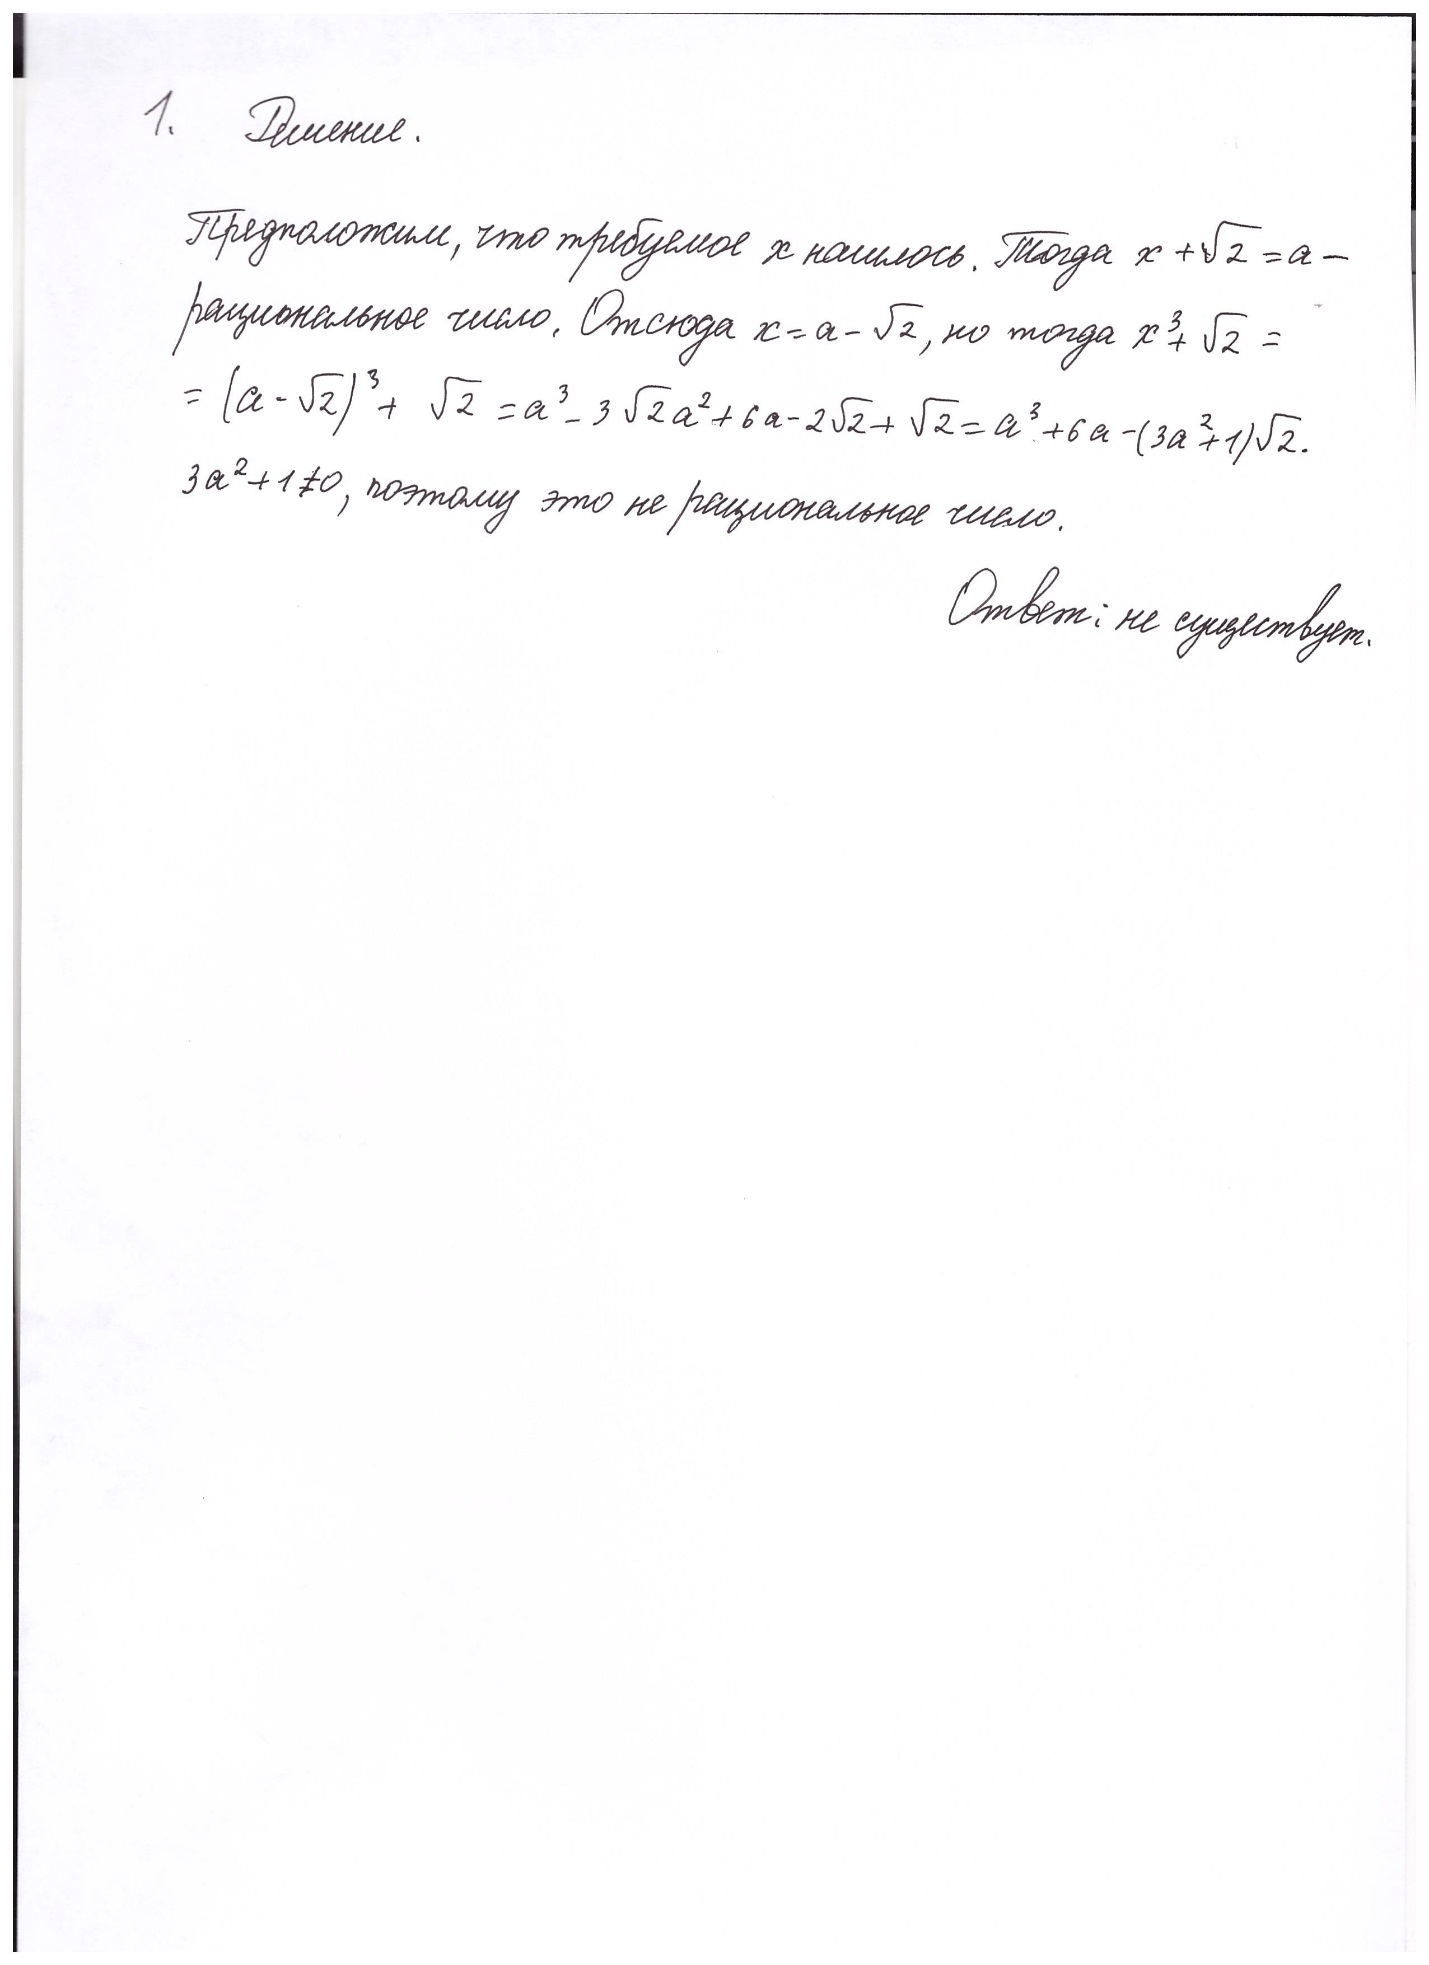 1. Решение.
Предположим, что требуемое x нашлось. Тогда x + √2 = a –
рациональное число. Отсюда x = a - √2, но тогда x³ + √2 =
= (a - √2)³ + √2 = a³ - 3√2a² + 6a - 2√2 + √2 = a³ + 6a - (3a² + 1)√2.
3a² + 1 ≠ 0, поэтому это не рациональное число.
Ответ: не существует.